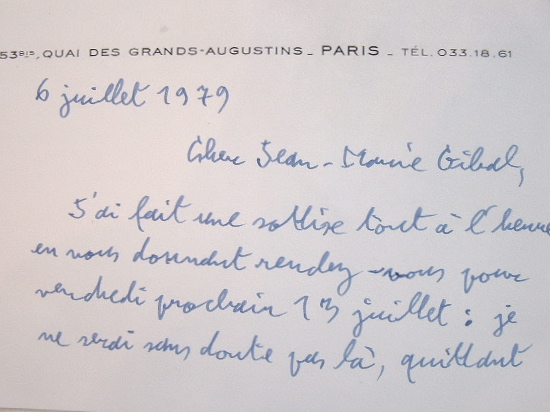 53BIS, QUAI DES GRANDS-AUGUSTINS _ PARIS _ TÉL. 033.18.61
6 juillet 1979
Cher Jean-Marie Gibal,
J'ai fait une sottise tout à l'heure
en vous donnant rendez-vous pour
vendredi prochain 13 juillet : je
ne serai sans doute pas là, quittant